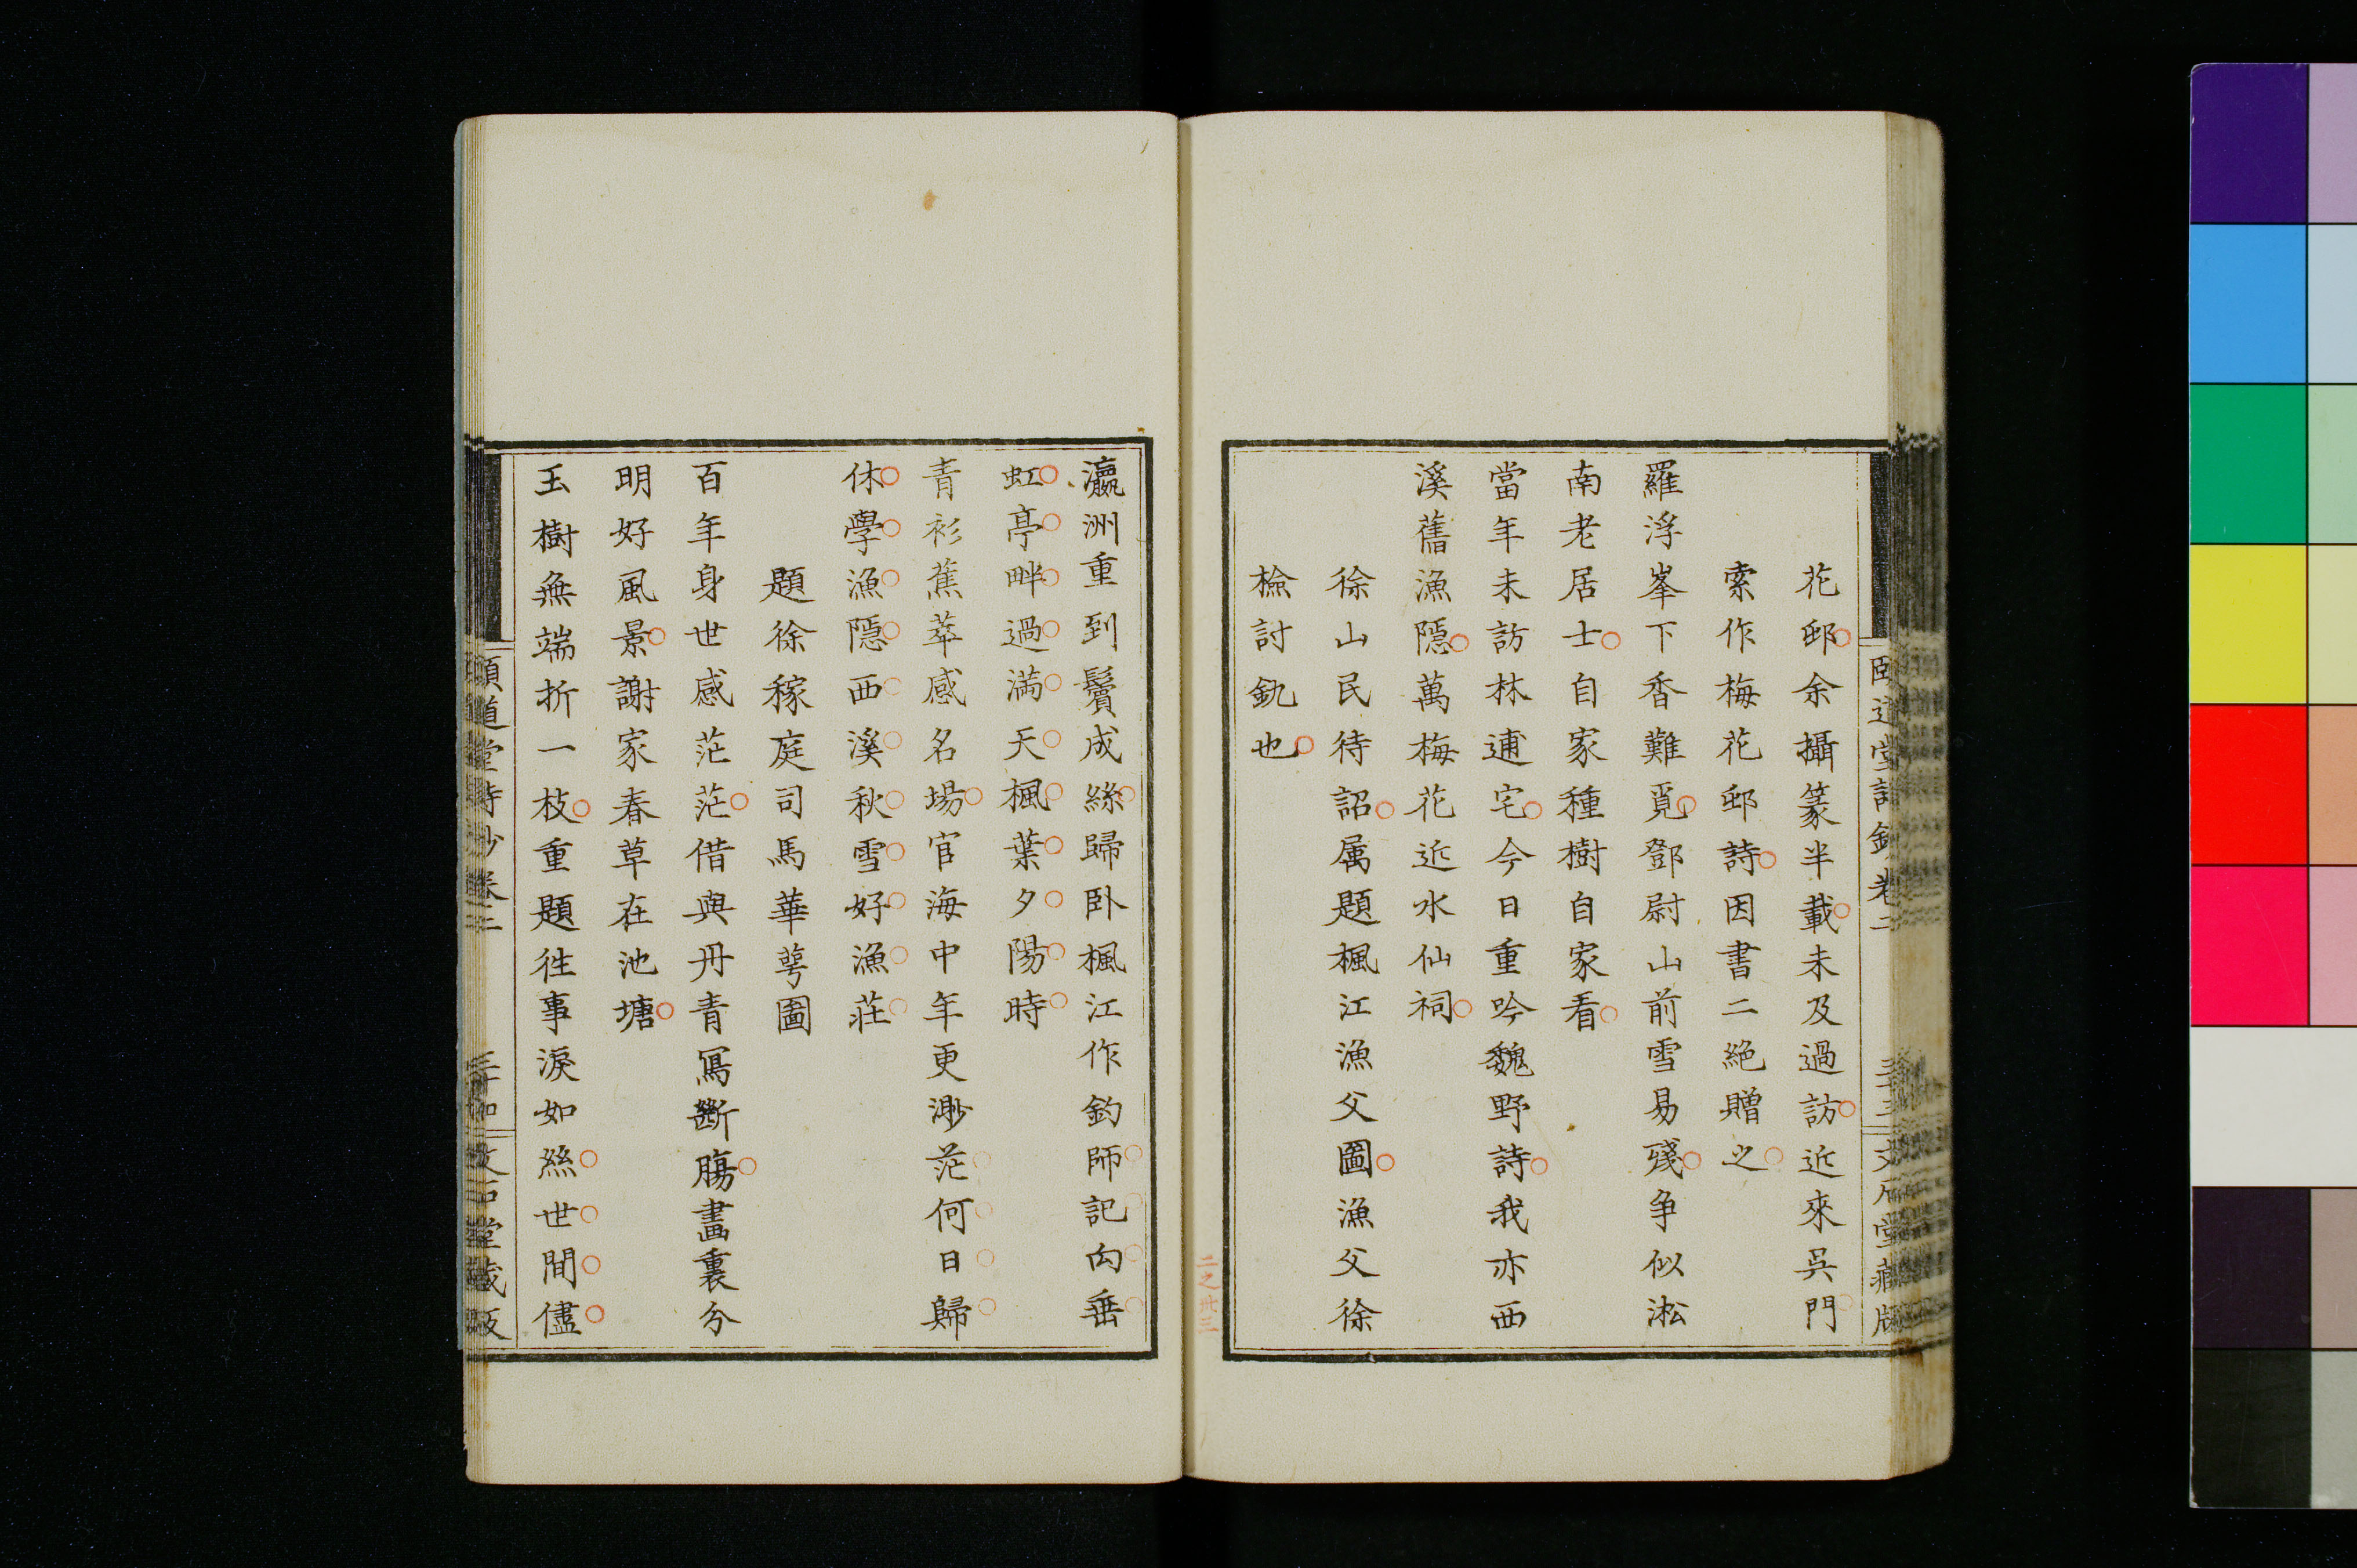 花邸余攝篆半載未及過訪近來吳門
索作梅花邸詩因書二絶贈之
羅浮峯下香難覓鄧尉山前雪易殘争似淞
南老居士自家種樹自家看
當年未訪林逋宅今日重吟魏野詩我亦西
溪舊漁隱萬梅花近水仙祠
徐山民待詔属題楓江漁父圖漁父徐
檢討釚也
二之卅三
瀛洲重到鬢成絲歸卧楓江作釣師記向垂
虹亭畔過滿天楓葉夕陽時
青衫蕉萃感名場官海中年更渺茫何日歸
休學漁隱西溪秋雪好漁莊
題徐稼庭司馬華萼圖
百年身世感茫茫借與丹青寫斷腸畫裏分
明好風景謝家春草在池塘
玉樹無端折一枝重題徃事淚如絲世間儘
頤道堂詩鈔卷二
文石堂藏版